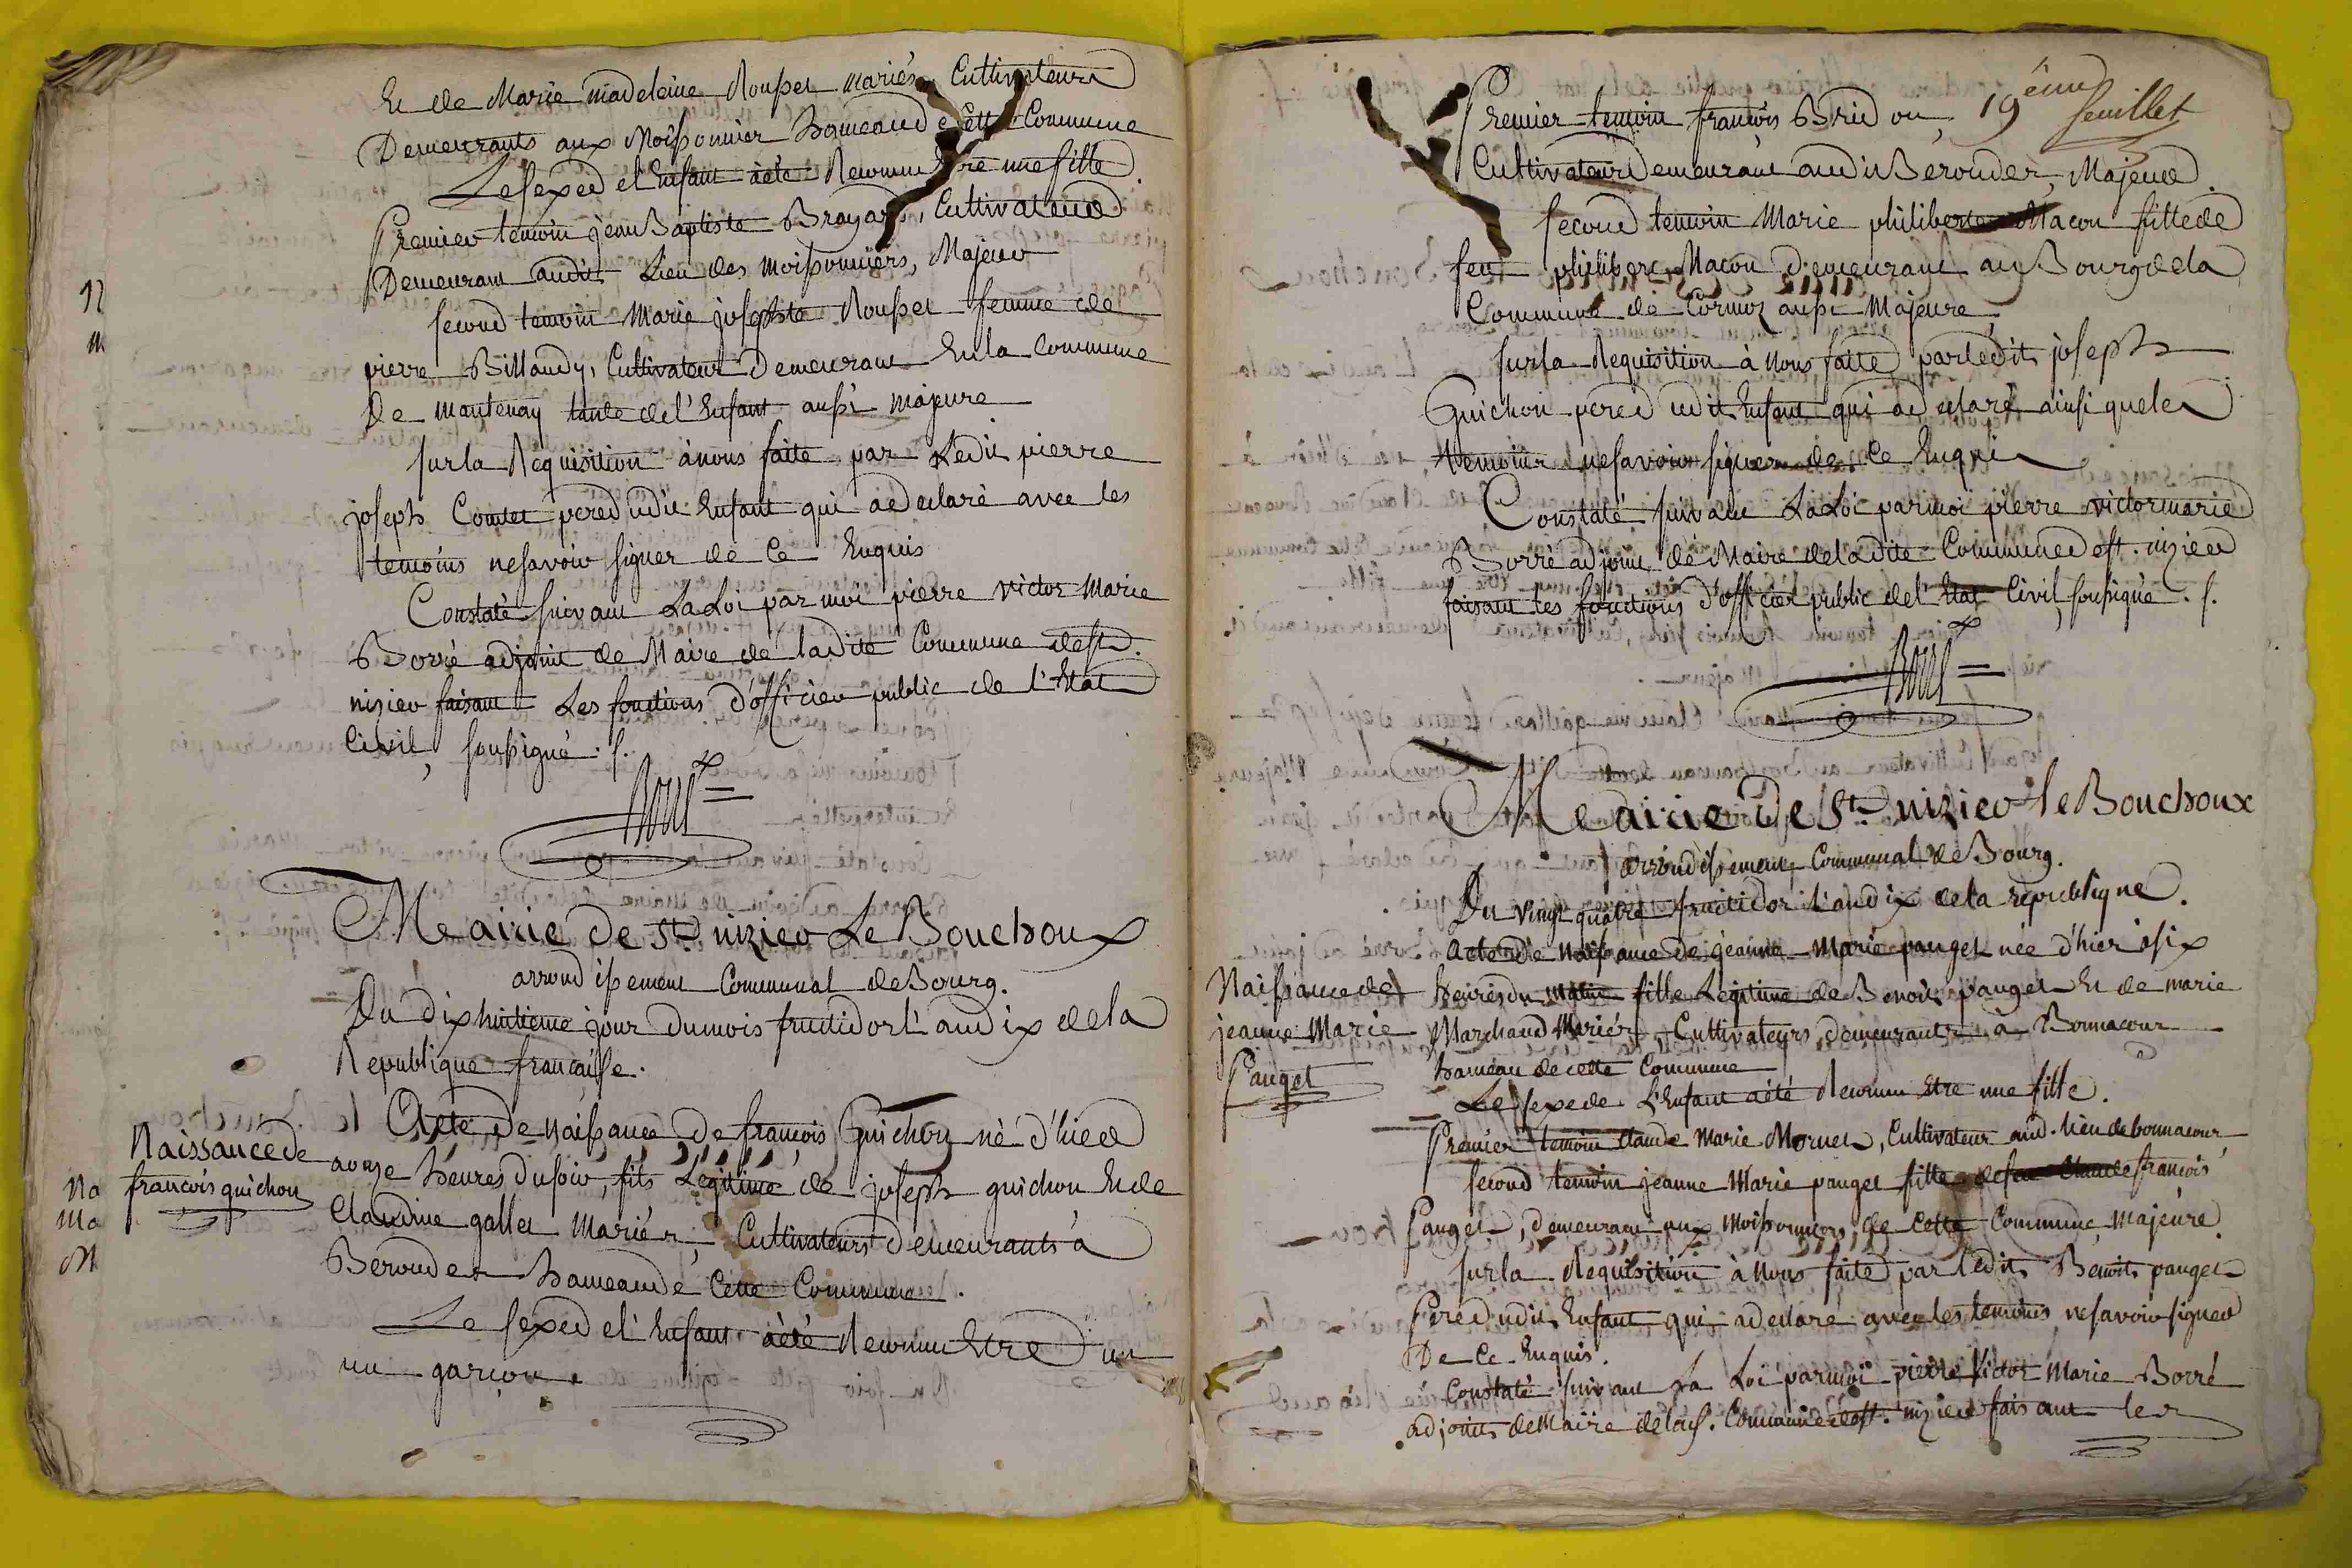 Et de Marie madeleine Rousset mariés Cultivateurs
Demeurants aux Moissonnier hameaud cette Commune
Le sexe d el Enfant àété Reconnu être une fille
Premier temoin jean Baptiste Brayard, Cultivateur
Demeurant audit Lieu des moissonniers, Majeur
second temoin Marie josephte Rousset femme de
pierre Billaudy, Cultivateur Demeurant En la Commune
De mantenay tante de l'Enfant aussi majeure
sur la Requisition à nous faite par Ledit pierre
joseph Comtet pere dudit Enfant qui a declaré avec les
temoins ne savoir signer de Ce Enquis
Constaté suivant La Loi par moi pierre victor Marie
Borré adjoint de Maire de ladite Commune de st.
nizier faisant Les fonctions d'officier public de l'Etat
Civil, soussigné .s.
Borré
Meairie de St. nizier Le Bouchoux
arrondissement Communal de Bourg.
Du dix huitieme jour du mois fructidor l'an dix de la
Republique francaisse.
Naissance de
françois guichon
Acte de naissance de françois Guichon né d'hier
a onze heures du soir, fils Legitime de joseph guichon Et de
Claudine gallet Mariés, Cultivateurs Demeurants à
Berouder hameau de Cette Commune.
Le sexe d el' Enfant àété Reconnu Etre un
un garçon.
19eme feuillet
Premier temoin françois Bridon,
Cultivateur Demeurant audit Berouder, Majeur.
second temoin Marie philiberte Macon fille de
feu philibert Macon Demeurant au Bourg de la
Commune de Cormoz aussi Majeure
sur la Requisition à Nous faite par ledit joseph
Guichon pere dudit Enfant qui a declaré ainsi que les
temoins ne savoir signer de Ce Enquis
Constaté suivant La Loi par moi pierre victor marie
Borré adjoint de Maire de la dite Commune de st. nizier
faisant les fonctions d'officier public de l'Etat Civil soussigné .s.
Borré
Meairie De St. nizier le Bouchoux
arrondissement Communal de Bourg.
Du vingt quatre fructidor l'an dix de la republique.
Naissance de
jeanne Marie
Pauget
acte de Naissance de jeanne Marie pauget née d'hier à six
heures du matin fille Legitime de Benoit pauget Et de marie
Marchand Mariés, Cultivateurs demeurants à Bonnacour
hameau de cette Commune
Le sexe de L'Enfant àété Reconnu Etre une fille.
Premier temoin claude Marie Mornet, Cultivateur aud. lieu de bonnacour
second temoin jeanne Marie pauget fille de feu Claude françois
Pauget, demeurant aux Moissonniers, de Cette Commune, majeure
sur la Requisition à Nous faite par ledit Benoit pauget
Pere dudit Enfant qui a declaré avec les temoins ne savoir signer
De Ce Enquis.
Constaté suivant La Loi par moi pierre Victor Marie Borré
adjoint de Maire de lad. Commune de st. nizier faisant les